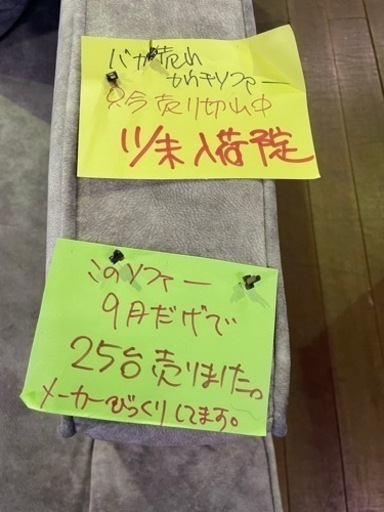 バカ売れ
カウチソファー
只今売り切れ中
11/末入荷予定
このソファー
9月だけで
25台売りました。
メーカーびっくりしてます。